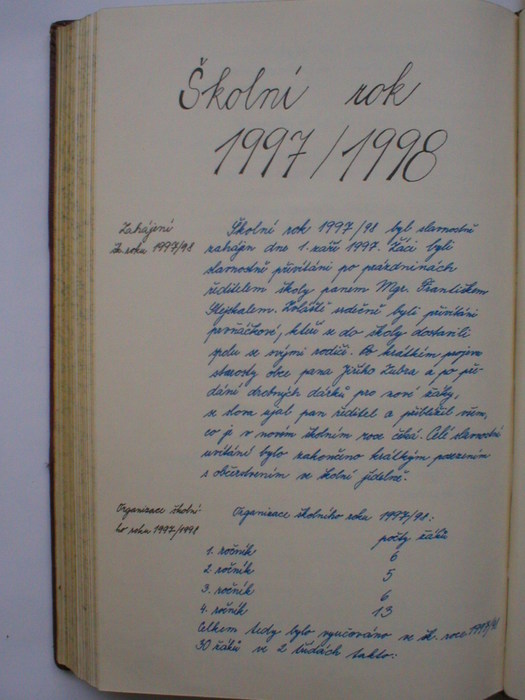 Školní rok
1997/1998
Zahájení
šk. roku 1997/98
Školní rok 1997/98 byl slavnostně
zahájen dne 1. září 1997. Žáci byli
slavnostně přivítáni po prázdninách
ředitelem školy panem Mgr. Františkem
Stejskalem. Zvláště srdečně byli přivítáni
prvňáčkové, kteří se do školy dostavili
spolu se svými rodiči. Po krátkém projevu
starosty obce pana Jiřího Zubra a po pře-
dání drobných dárků pro nové žáky,
se slova ujal pan ředitel a přiblížil všem,
co je v novém školním roce čeká. Celé slavnostní
uvítání bylo zakončeno krátkým posezením
s občerstvením ve školní jídelně.
Organizace školní-
ho roku 1997/1998
Organizace školního roku 1997/98:
počty žáků
1. ročník 6
2 ročník 5
3. ročník 6
4. ročník 13
Celkem tedy bylo vyučováno ve šk. roce 1997/98
30 žáků ve 2 třídách takto: